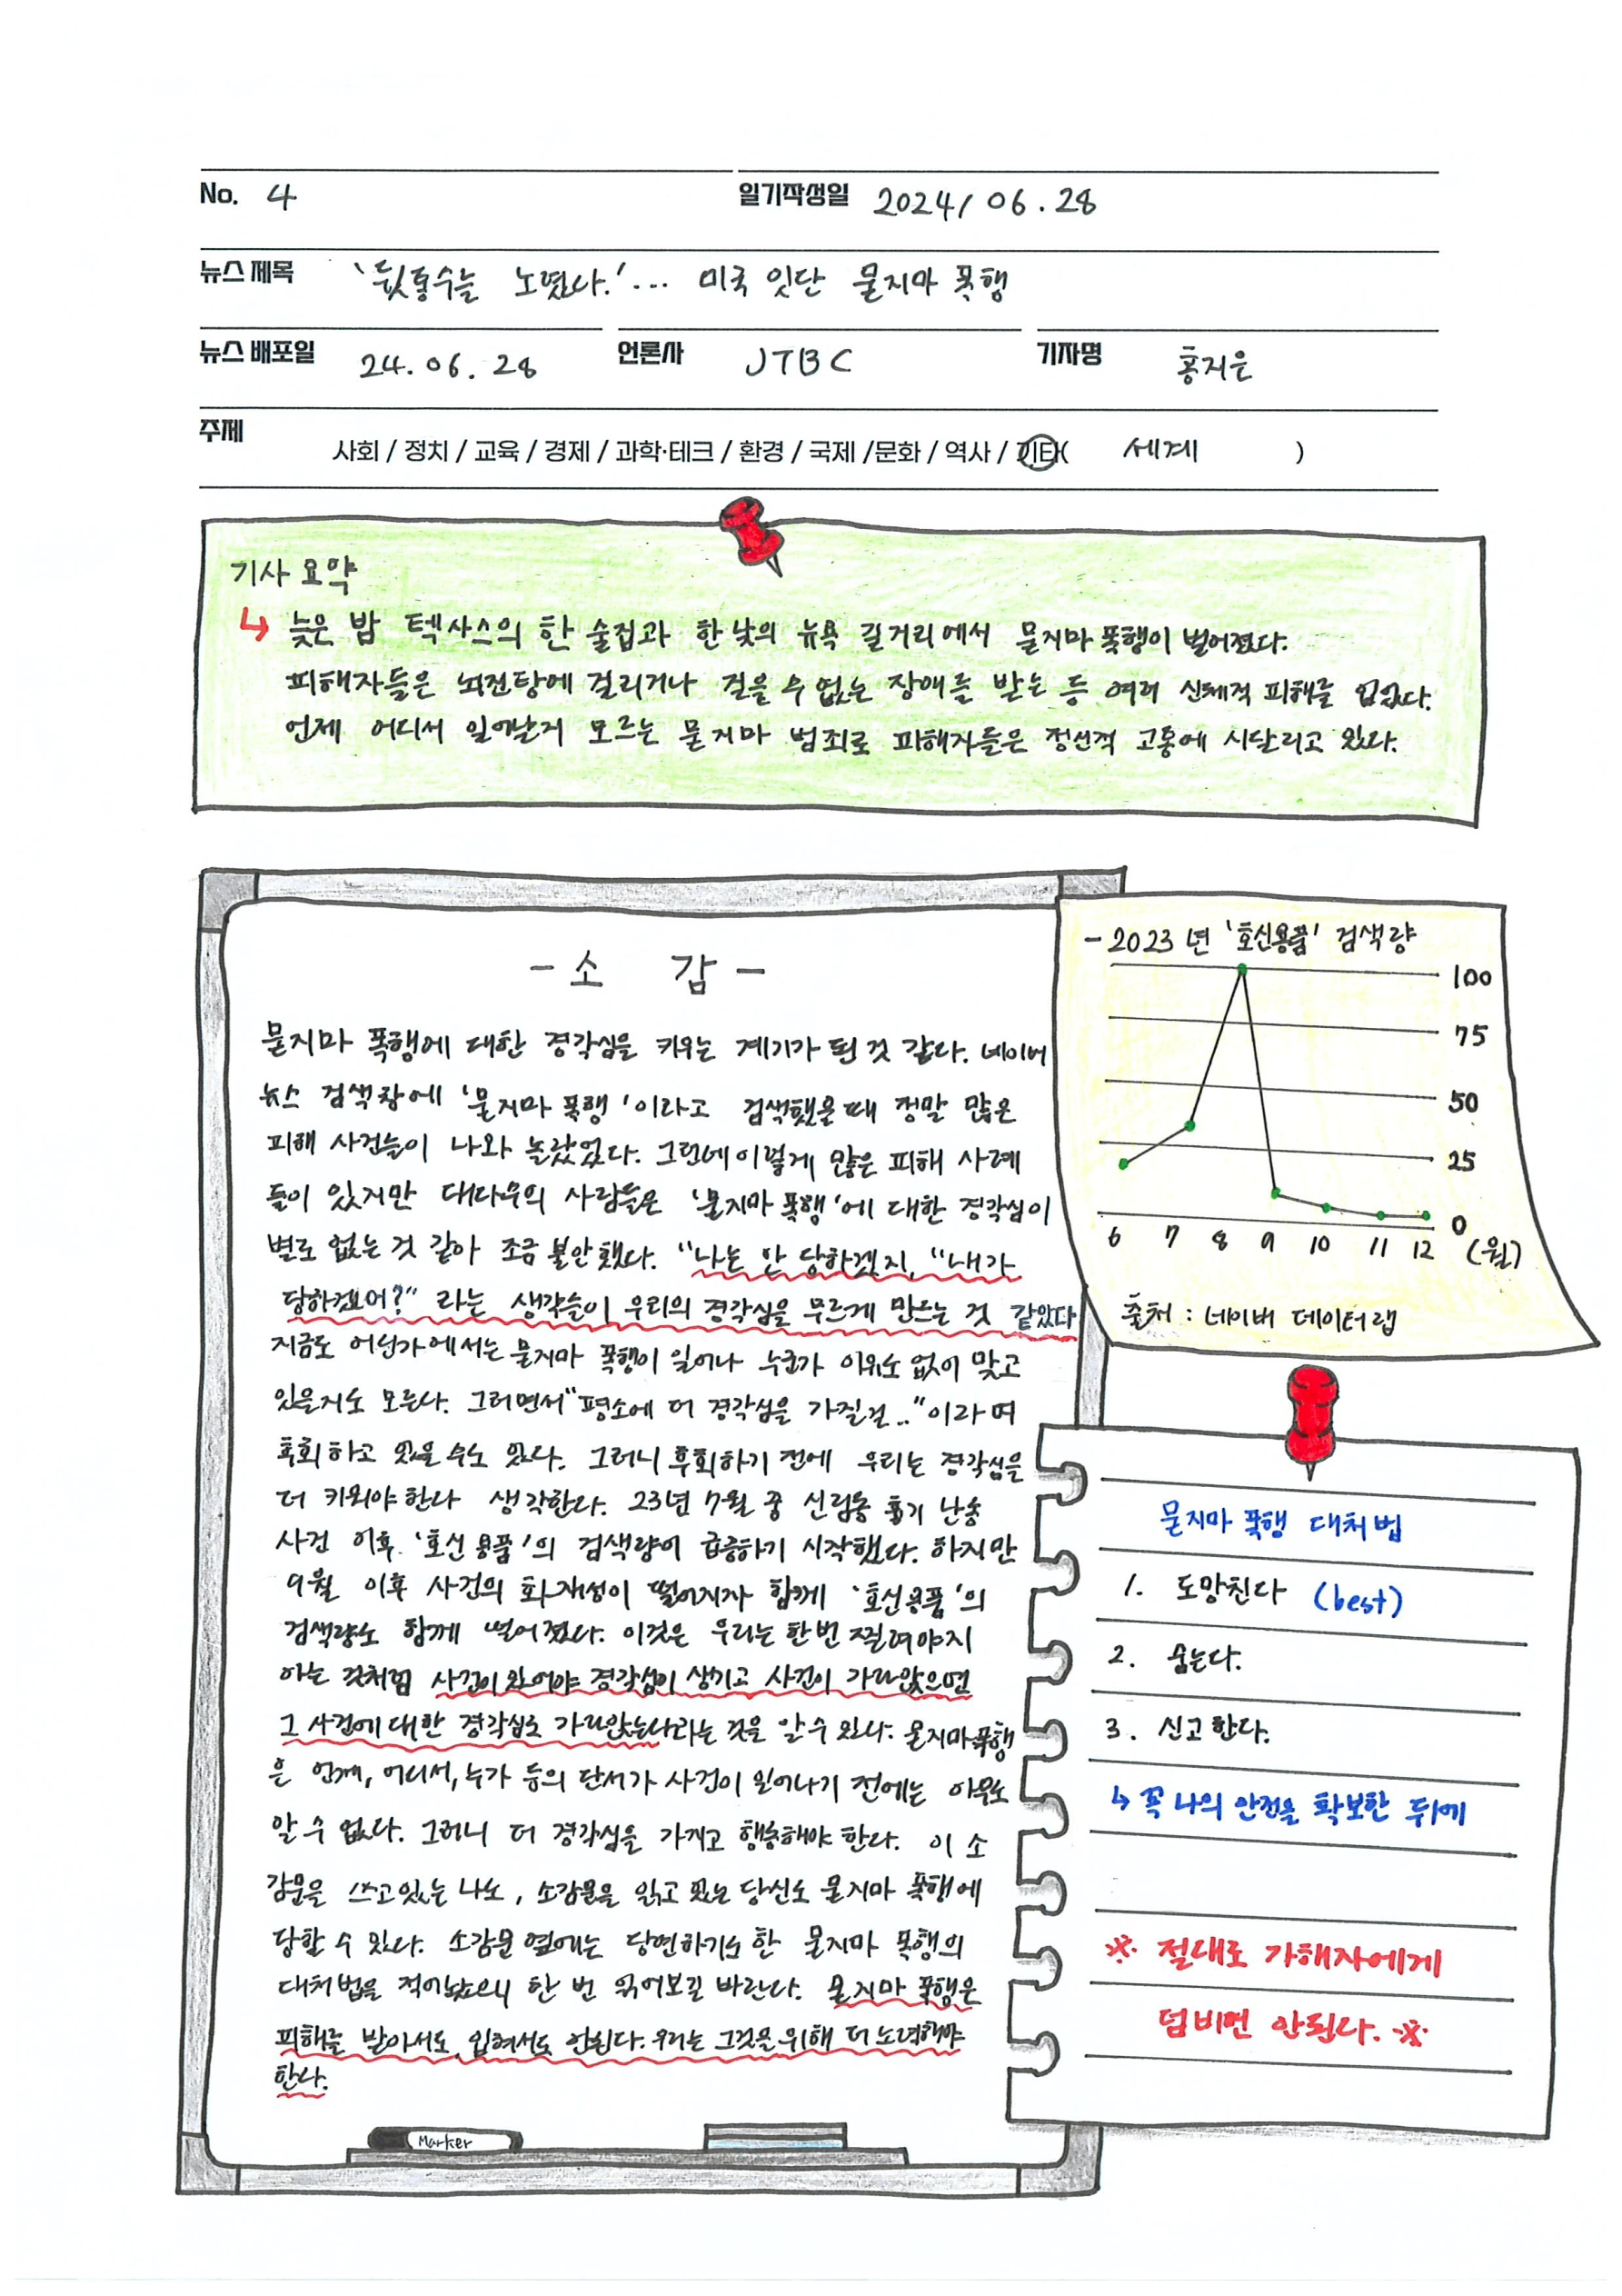 No. 4
일기작성일 2024/06.28
뉴스 제목 '뒷통수를 노렸다.'... 미국 잇단 묻지마 폭행
뉴스 배포일 24.06.28 언론사 JTBC 기자명 홍지은
주제 사회 / 정치 / 교육 / 경제 / 과학·테크 / 환경 / 국제 /문화 / 역사 / 기타( 세계 )
기사 요약
↳ 늦은 밤 텍사스의 한 술집과 한 낮의 뉴욕 길거리에서 묻지마 폭행이 벌어졌다.
피해자들은 뇌진탕에 걸리거나 걸을 수 없는 장애를 받는 등 여러 신체적 피해를 입었다.
언제 어디서 일어날지 모르는 묻지마 범죄로 피해자들은 정신적 고통에 시달리고 있다.
- 소 감 -
묻지마 폭행에 대한 경각심을 키우는 계기가 된 것 같다. 네이버
뉴스 검색창에 '묻지마 폭행'이라고 검색했을 때 정말 많은
피해 사건들이 나와 놀랐었다. 그런데 이렇게 많은 피해 사례
들이 있지만 대다수의 사람들은 '묻지마 폭행'에 대한 경각심이
별로 없는 것 같아 조금 불안했다. "나는 안 당하겠지, "내가
당하겠어?" 라는 생각들이 우리의 경각심을 무르게 만드는 것 같았다
지금도 어딘가에서는 묻지마 폭행이 일어나 누군가 이유도 없이 맞고
있을지도 모른다. 그러면서 "평소에 더 경각심을 가질걸.." 이라며
후회하고 있을 수도 있다. 그러니 후회하기 전에 우리는 경각심을
더 키워야 한다 생각한다. 23년 7월 중 신림동 흉기 난동
사건 이후 '호신용품'의 검색량이 급증하기 시작했다. 하지만
9월 이후 사건의 화재성이 떨어지자 함께 '호신용품'의
검색량도 함께 떨어졌다. 이것은 우리는 한번 찔려야지
아는 것처럼 사건이 있어야 경각심이 생기고 사건이 가라앉으면
그 사건에 대한 경각심도 가라앉는다라는 것을 알 수 있다. 묻지마 폭행
은 언제, 어디서, 누가 등의 단서가 사건이 일어나기 전에는 아무도
알 수 없다. 그러니 더 경각심을 가지고 행동해야 한다. 이 소
감문을 쓰고 있는 나도, 소감문을 읽고 있는 당신도 묻지마 폭행에
당할 수 있다. 소감문 옆에는 당연하기도 한 묻지마 폭행의
대처법을 적어놨으니 한 번 읽어보길 바란다. 묻지마 폭행은
피해를 받아서도, 입혀서도 안된다. 우리는 그것을 위해 더 노력해야
한다.
Marker
- 2023년 '호신용품' 검색량
100
75
50
25
0
6 7 8 9 10 11 12 (월)
출처 : 네이버 데이터랩
묻지마 폭행 대처법
1. 도망친다 (best)
2. 숨는다.
3. 신고한다.
↳ 꼭 나의 안전을 확보한 뒤에
※ 절대로 가해자에게
덤비면 안된다. ※